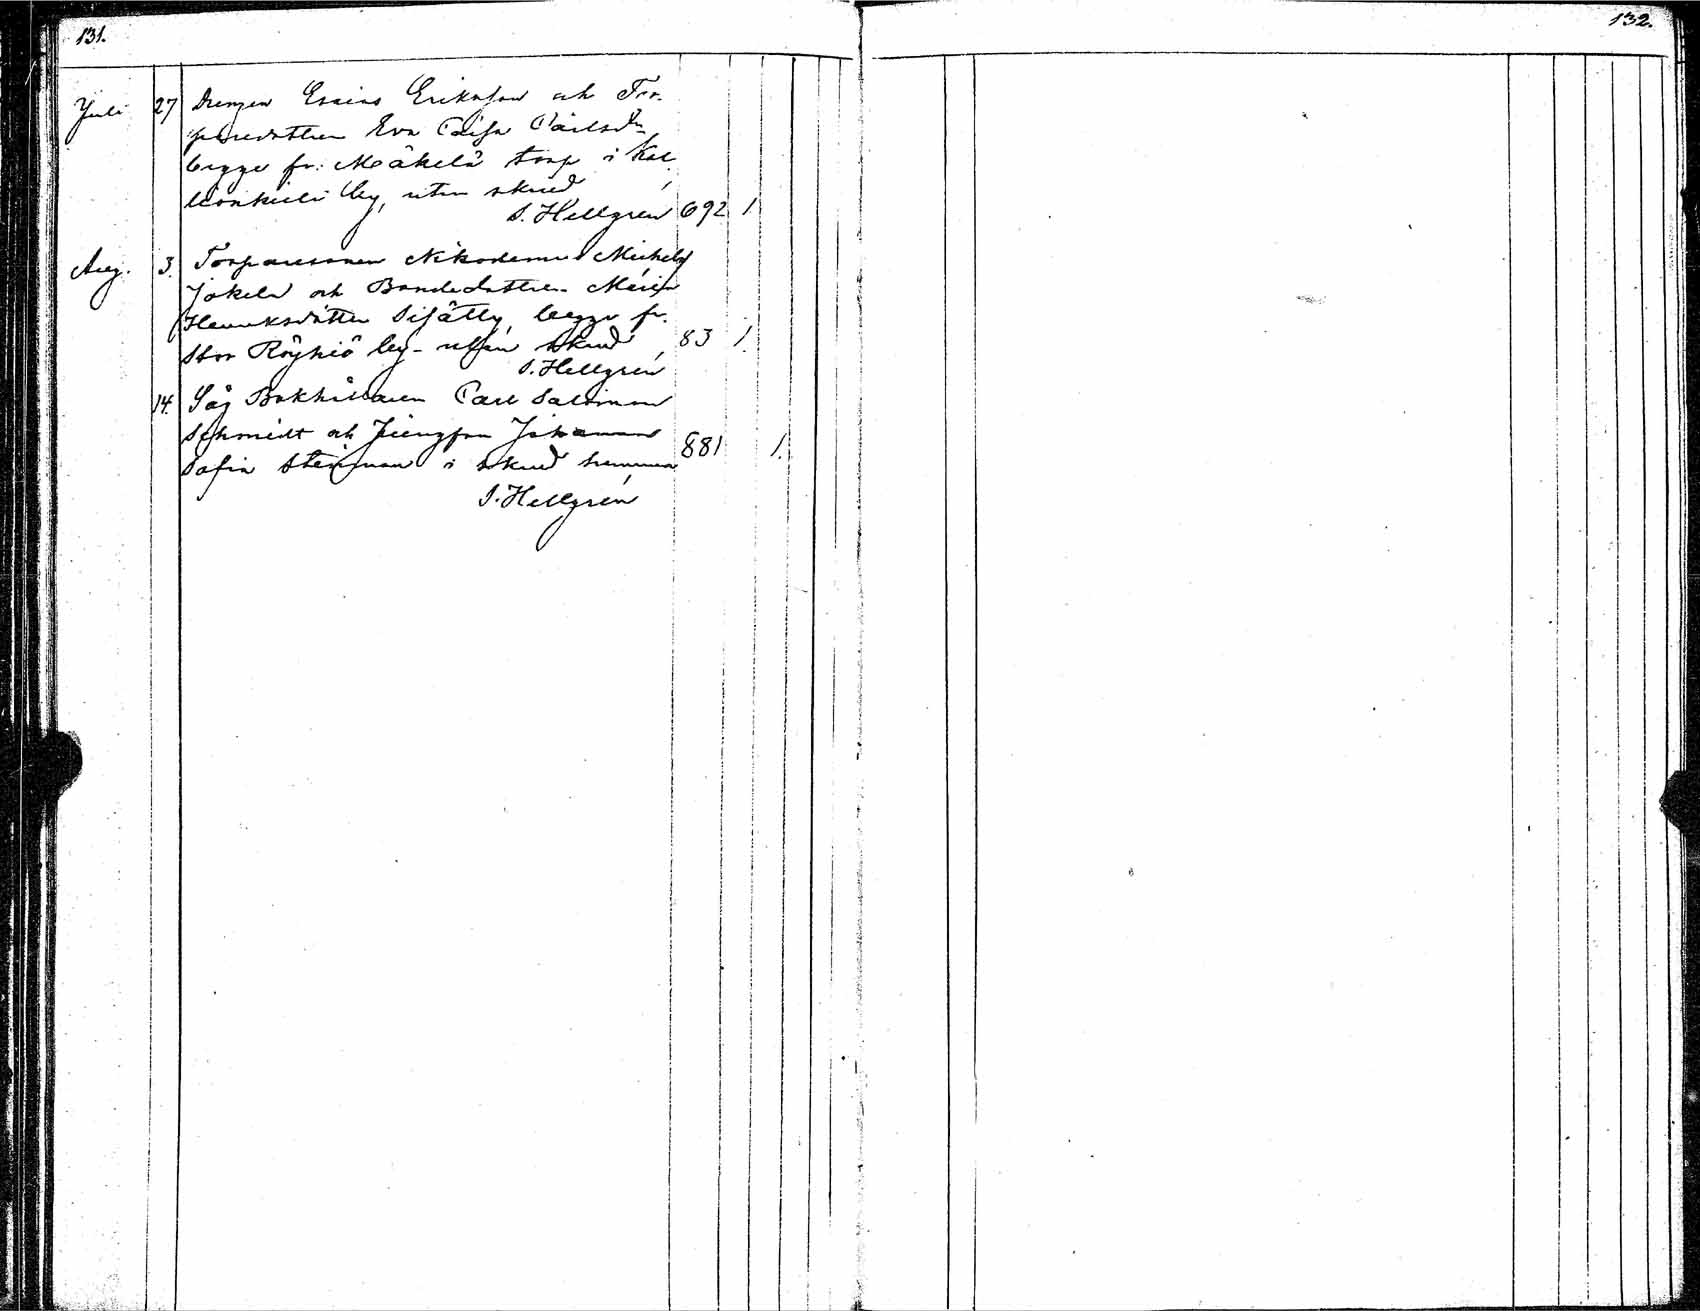 131.
132.
Juli 27 Drengen Esaias Eriksson och Tor-
paredottren Eva Caisa Carlsdr
begge fr: Mäkelä torp i Kal
by, utan skrud
S. Hellgrén 692 1
Aug. 3. Torparesonen Nikodemus Michelss
Jokela och Bondedottren Maria
Henriksdotter Sijätty, begge fr.
Stor Röyhiö by - utan skrud, 83 1.
S. Hellgrén
14. Såg Bokhållaren Carl Salomon
Schmidt och Jungfru Johanna
Sofia Stenman i skrud hemma 881 1.
S. Hellgrén